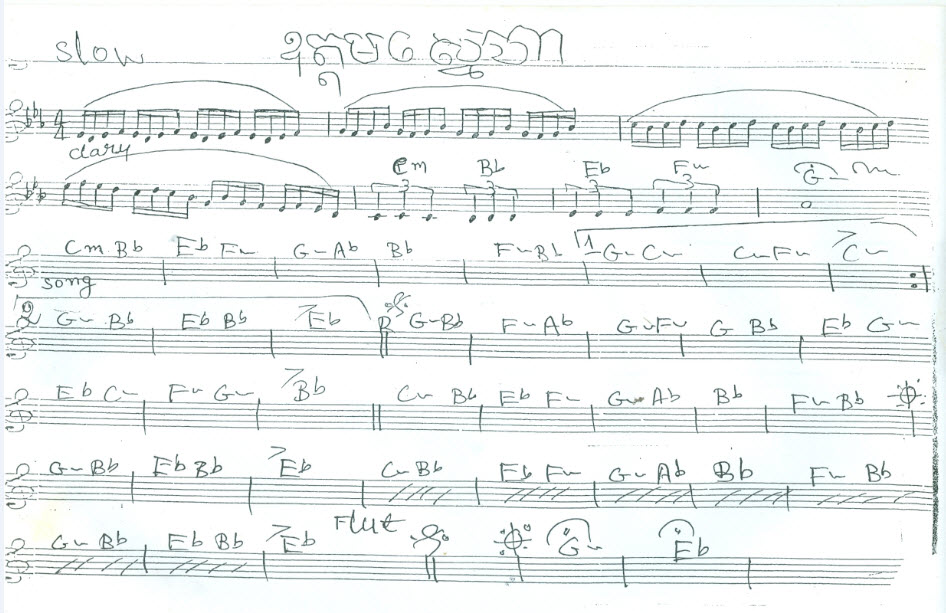 slow
4/4
clary
Cm Bb Eb Fm G
Cm Bb Eb Fm Gm Ab Bb Fm Bb 1 Gm Cm Cm Fm Cm
song
2 Gm Bb Eb Bb Eb Gm Bb Fm Ab Gm Fm G Bb Eb Gm
Eb Cm Fm Gm Bb Cm Bb Eb Fm Gm Ab Bb Fm Bb
Gm Bb Eb Bb Eb Cm Bb Eb Fm Gm Ab Bb Fm Bb
Flut
Gm Bb Eb Bb Eb Gm Eb